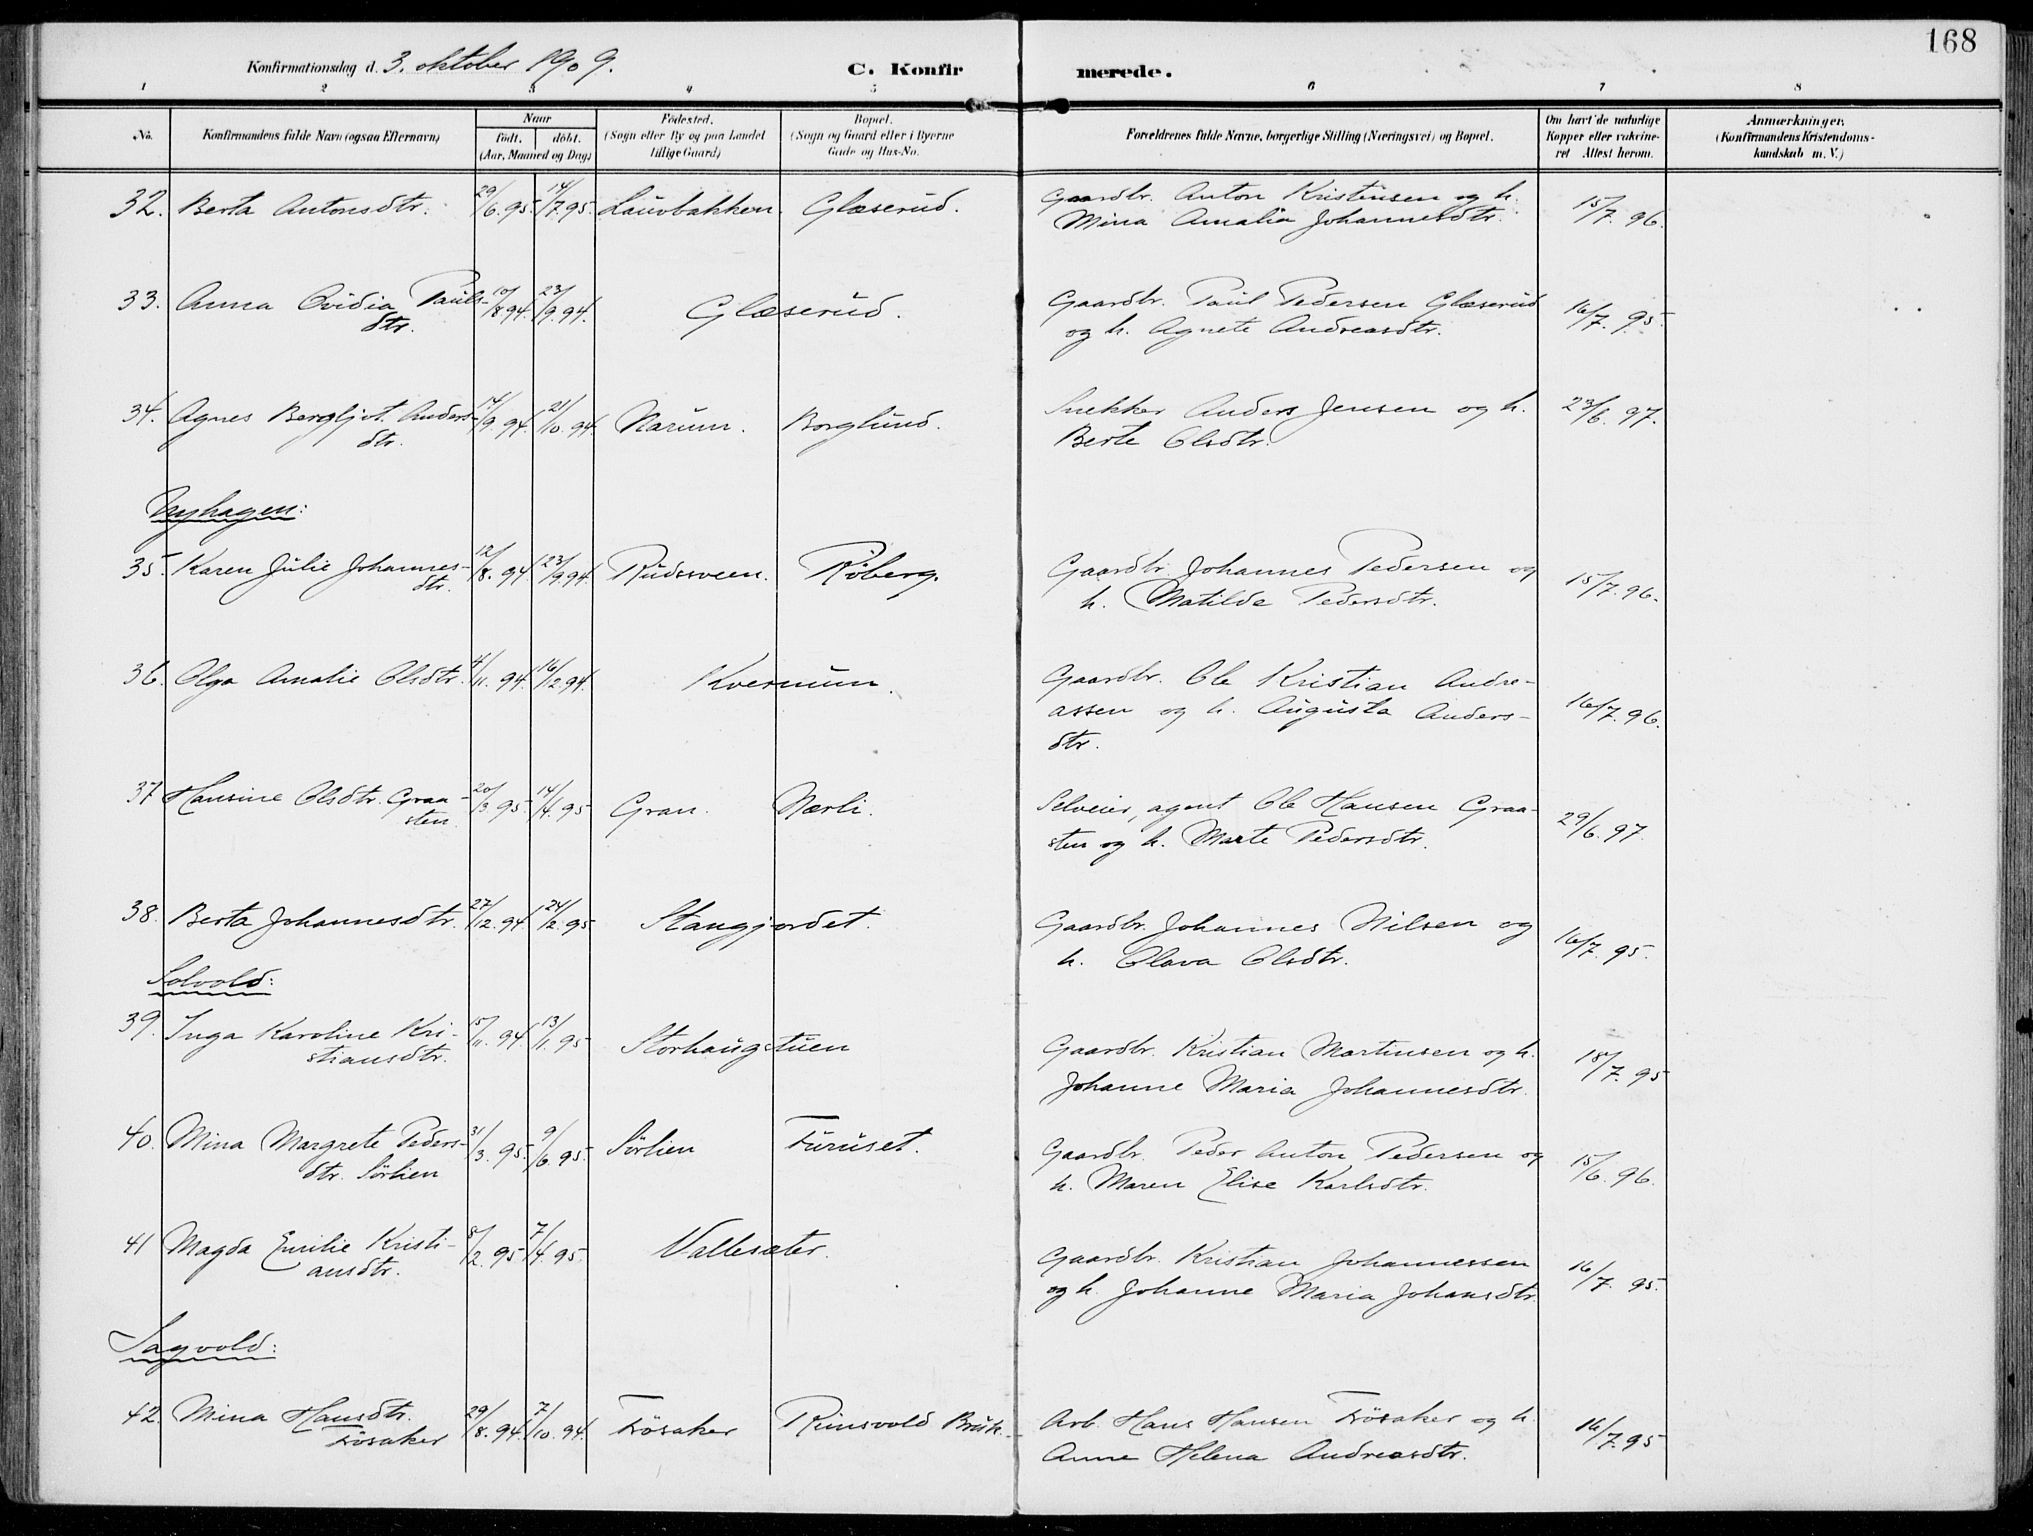 168
Konfirmationsdag d. 3. oktober 1909. C. Konfirmerede.
1 2 3 4 5 6 7 8
No. Konfirmandens fulde Navn (ogsaa Efternavn) Naar født. døbt. (Aar, Maaned og Dag) Fødested. (Sogn eller By og paa Landet tillige Gaard) Bopæl. (Sogn og Gaard eller i Byerne Gade og Hus-No. Forældrenes fulde Navne, borgerlige Stilling (Næringsvei) og Bopæl. Om havt de naturlige Kopper eller vakcineret Attest herom. Anmærkninger, (Konfirmandens Kristendomskundskab m. V.)
32. Berta Antonsdtr. 29/6. 95. 14/7. 95. Lauvbakken. Glæserud. Gaardbr. Anton Kristensen og h. 15/7. 96.
Mina Amalia Johannesdtr.
33. Anna Ovidia Pauls- 10/8. 94. 23/9. 94. Glæserud. Gaardbr. Paul Pedersen Glæserud 16/7. 95.
dtr. og h. Agnete Andreasdtr.
34. Agnes Bergljot Anders- 14/9. 94. 21/10. 94. Narum. Borglund. Snekker Anders Jensen og h. 23/6. 97.
dtr. Berte Olsdtr.
Nyhagen:
35. Karen Julie Johannes- 12/8. 94. 23/9. 94. Rudsveen. Røberg. Gaardbr. Johannes Pedersen og 15/7. 96.
dtr. h. Matilde Pedersdtr.
36. Olga Amalie Olsdtr. 4/11. 94. 16/12. 94. Kvernum. Gaardbr. Ole Kristian Andre- 16/7. 96.
assen og h. Augusta Anders-
dtr.
37 Hansine Olsdtr. Graa- 20/3 95. 14/4. 95 Gran. Nærli. Selveier, agent Ole Hansen Graa- 29/6. 97.
sten. sten og h. Marte Pedersdtr.
38. Berta Johannesdtr. 27/12. 94. 24/2. 95 Stangjordet. Gaardbr. Johannes Nilsen og 16/7. 95.
h. Olava Olsdtr.
Solvold:
39. Inga Karoline Kri- 15/11. 94. 13/1. 95 Storhaugstuen Gaardbr. Kristian Martinsen og h. 18/7. 95
stiansdtr. Johanne Maria Johannesdtr.
40. Mina Margrete Peders- 31/3. 95. 9/6. 95. Sørlien Furuset. Gaardbr. Peder Anton Pedersen og 15/6. 96.
dtr. Sørlien h. Maren Elise Karlsdtr.
41 Magda Emilie Kristi- 8/2. 95 7/4. 95. Vallesæter. Gaardbr. Kristian Johannessen 16/7. 95.
ansdtr. og h. Johanne Maria Johansdtr.
Sagvold:
42. Mina Hansdtr. 29/8. 94. 7/10. 94. Frösaker Rinsvold Bruk. Arb. Hans Hansen Frösaker og h. 16/7. 95
Frösaker Anne Helena Andreasdtr.